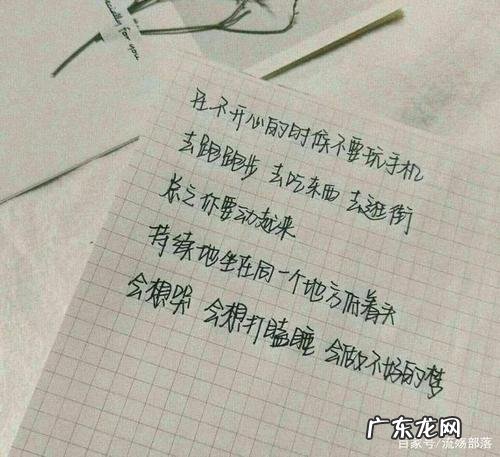 ecially for you
在不开心的时候不要玩手机
去跑跑步 去吃东西 去逛街
总之你要动起来
持续地坐在同一个地方低着头
会想哭 会想打瞌睡 会做不好的梦
广东龙网
百家号/流殇部落